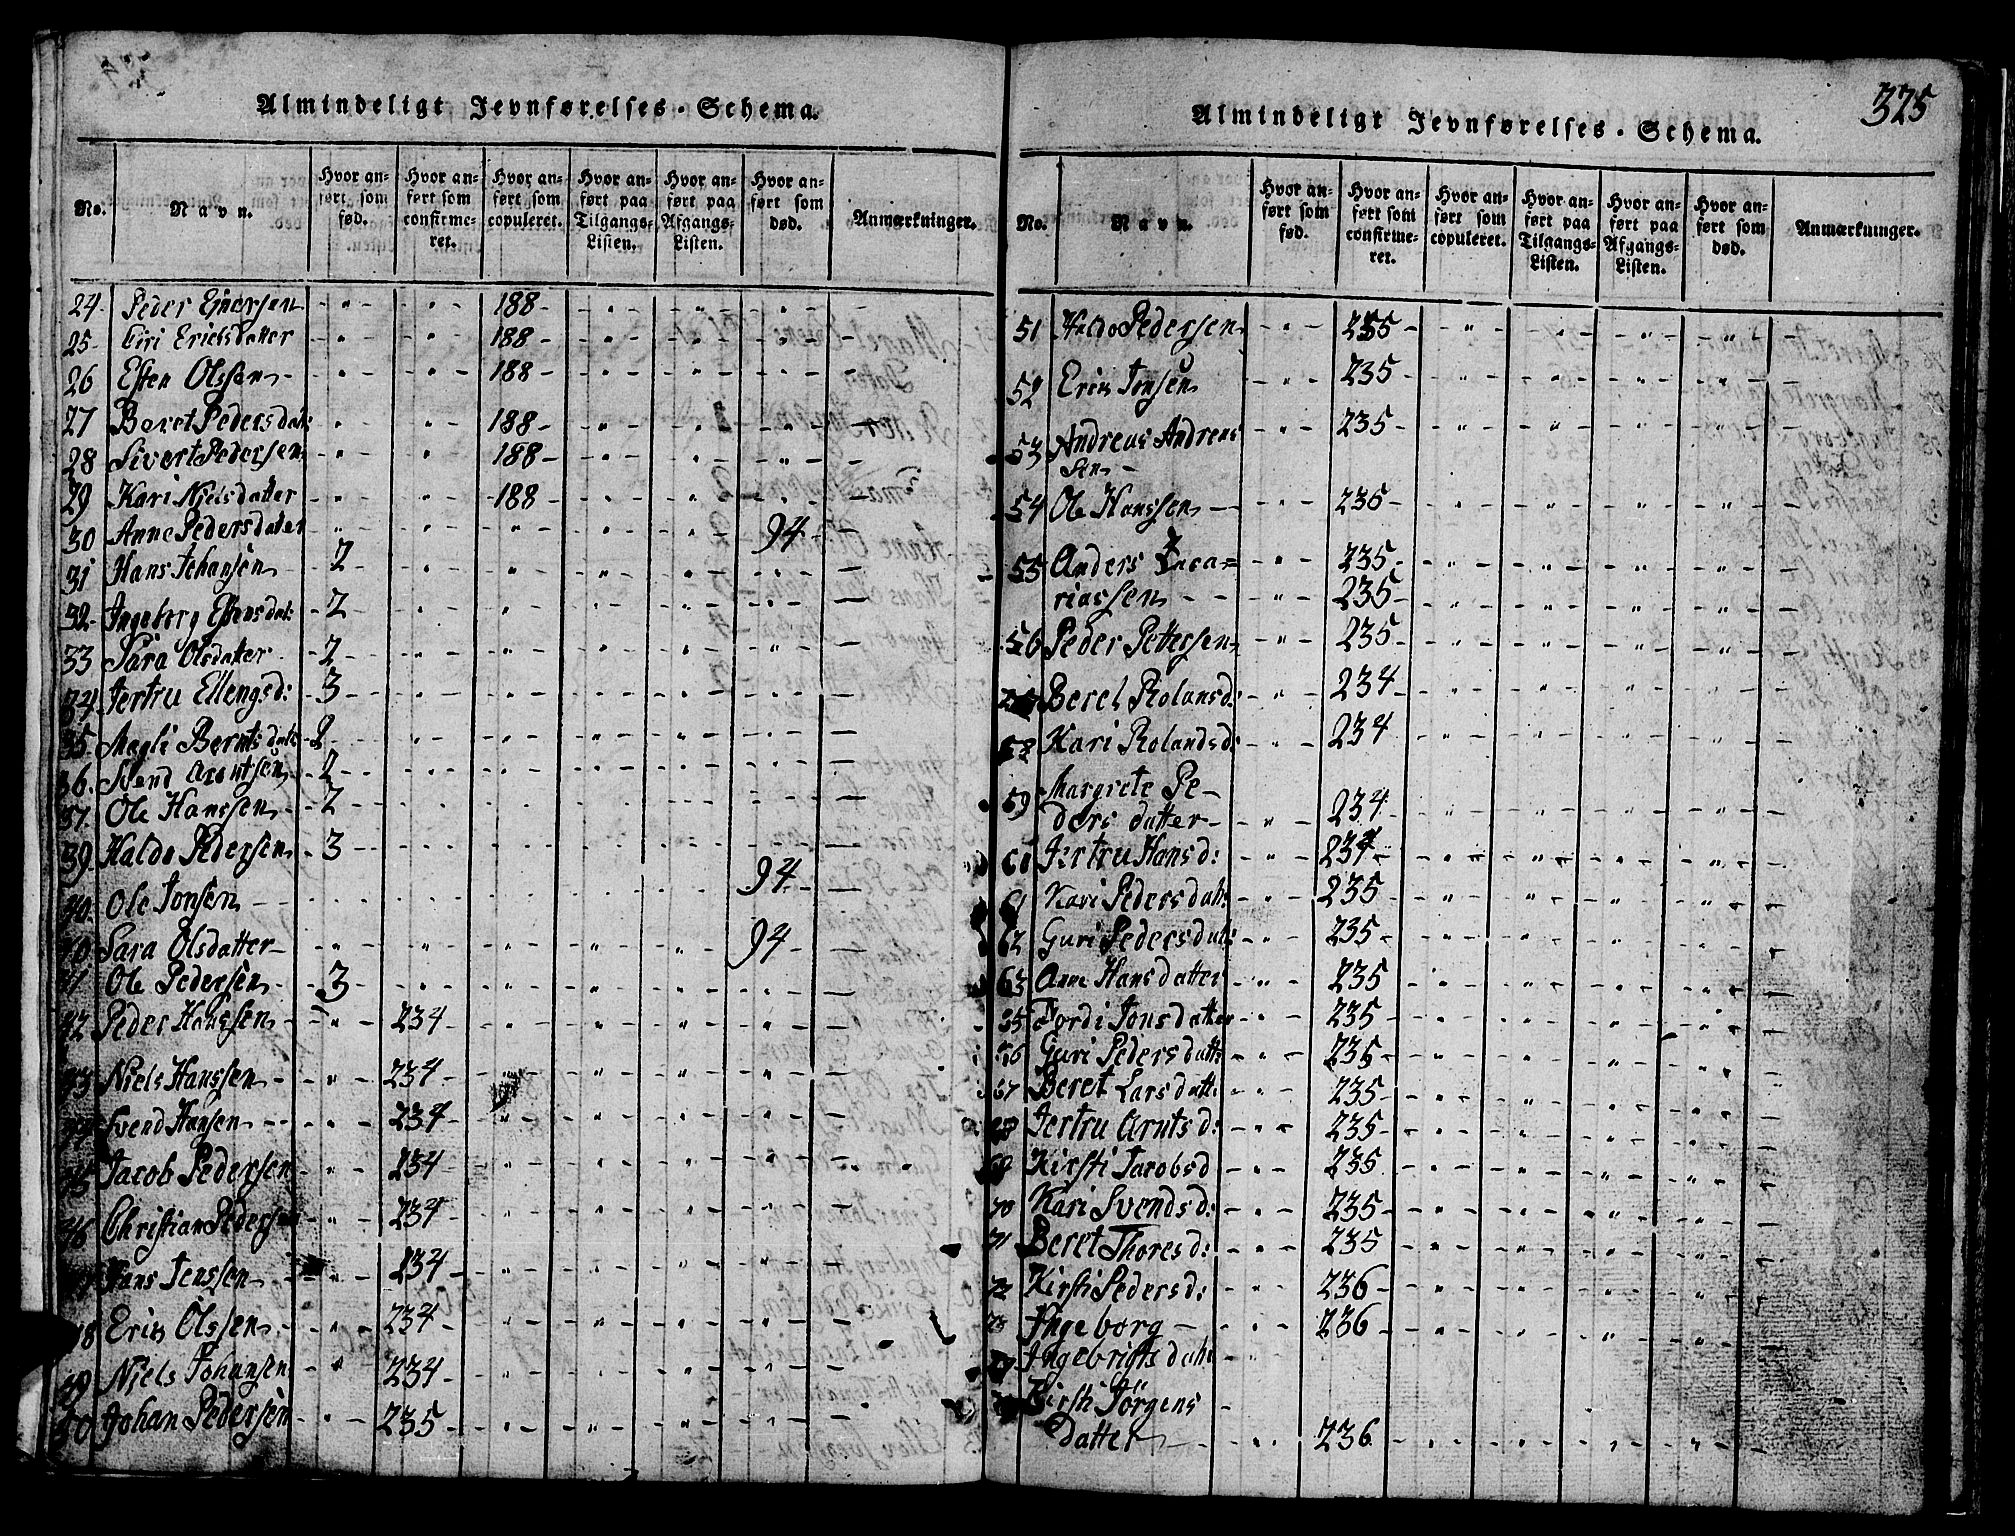 Almindeligt Jevnførelses-Schema.
No. Navn. Hvor anført som fød. Hvor anført som confirmeret. Hvor anført som copuleret. Hvor anført paa Tilgangs-Listen. Hvor anført paa Afgangs-Listen. Hvor anført som død. Anmærkninger.
24 Peder Ejnersen 188
25 Siri Erichsdatter 188
26 Esten Olssen 188
27 Beret Pedersdat: 188
28 Sivert Pedersen 188
29 Kari Nielsdatter 188
30 Anne Pedersdatter 94
31 Hans Johansen 2
32 Ingeborg Estensdat: 2
33 Sara Olsdatter 2
34 Jertru Ellengsd: 3
35 Magli Berntsdatt 2
36. Svend Arentsen 2
37. Ole Hanssen 2
39. Haldo Pedersen 3
40. Ole Jonsen 94
40 Sara Olsdatter 94
41 Ole Pedersen 3
42 Peder Hanssen 234
43 Niels Hanssen 234
44 Svend Hansen 234
45 Jacob Pedersen 234
46 Christian Pedersen 234
47 Hans Jenssen 234
48 Erik Olssen 234
49 Niels Johansen 234
50 Johan Pedersen 235
325
Almindeligt Jevnførelses-Schema.
No. Navn. Hvor anført som fød. Hvor anført som confirmeret. Hvor anført som copuleret. Hvor anført paa Tilgangs-Listen. Hvor anført paa Afgangs-Listen. Hvor anført som død. Anmærkninger.
51 Haldo Pedersen 235
52 Erik Jonsen 235
53 Andreas Andreas 235
sen
54 Ole Hanssen 235
55 Anders 235
riassen 235
56 Peder Pettersen 235
Beret Rolansd: 234
58 Kari Rolandsd: 234
59 Margrete Pe-
ders datter 234
61 Jertru Hansd: 234
61 Kari Pedersdat: 235
62 Guri Pedersdat: 235
63 Anne Hansdatter 235
65 Jonsdatter 235
66 Guri Pedersdatt 235
67 Beret Larsdatt: 235
68 Jertru Arntsd: 235
69 Kirsti Jacobsd 235
70 Kari Svendsd: 235
71 Beret Thoresd: 235
72 Kirsti Pedersd: 236
73 Ingeborg 236
Ingebrigtsdatt
Kirsti Jörgens
datter 236